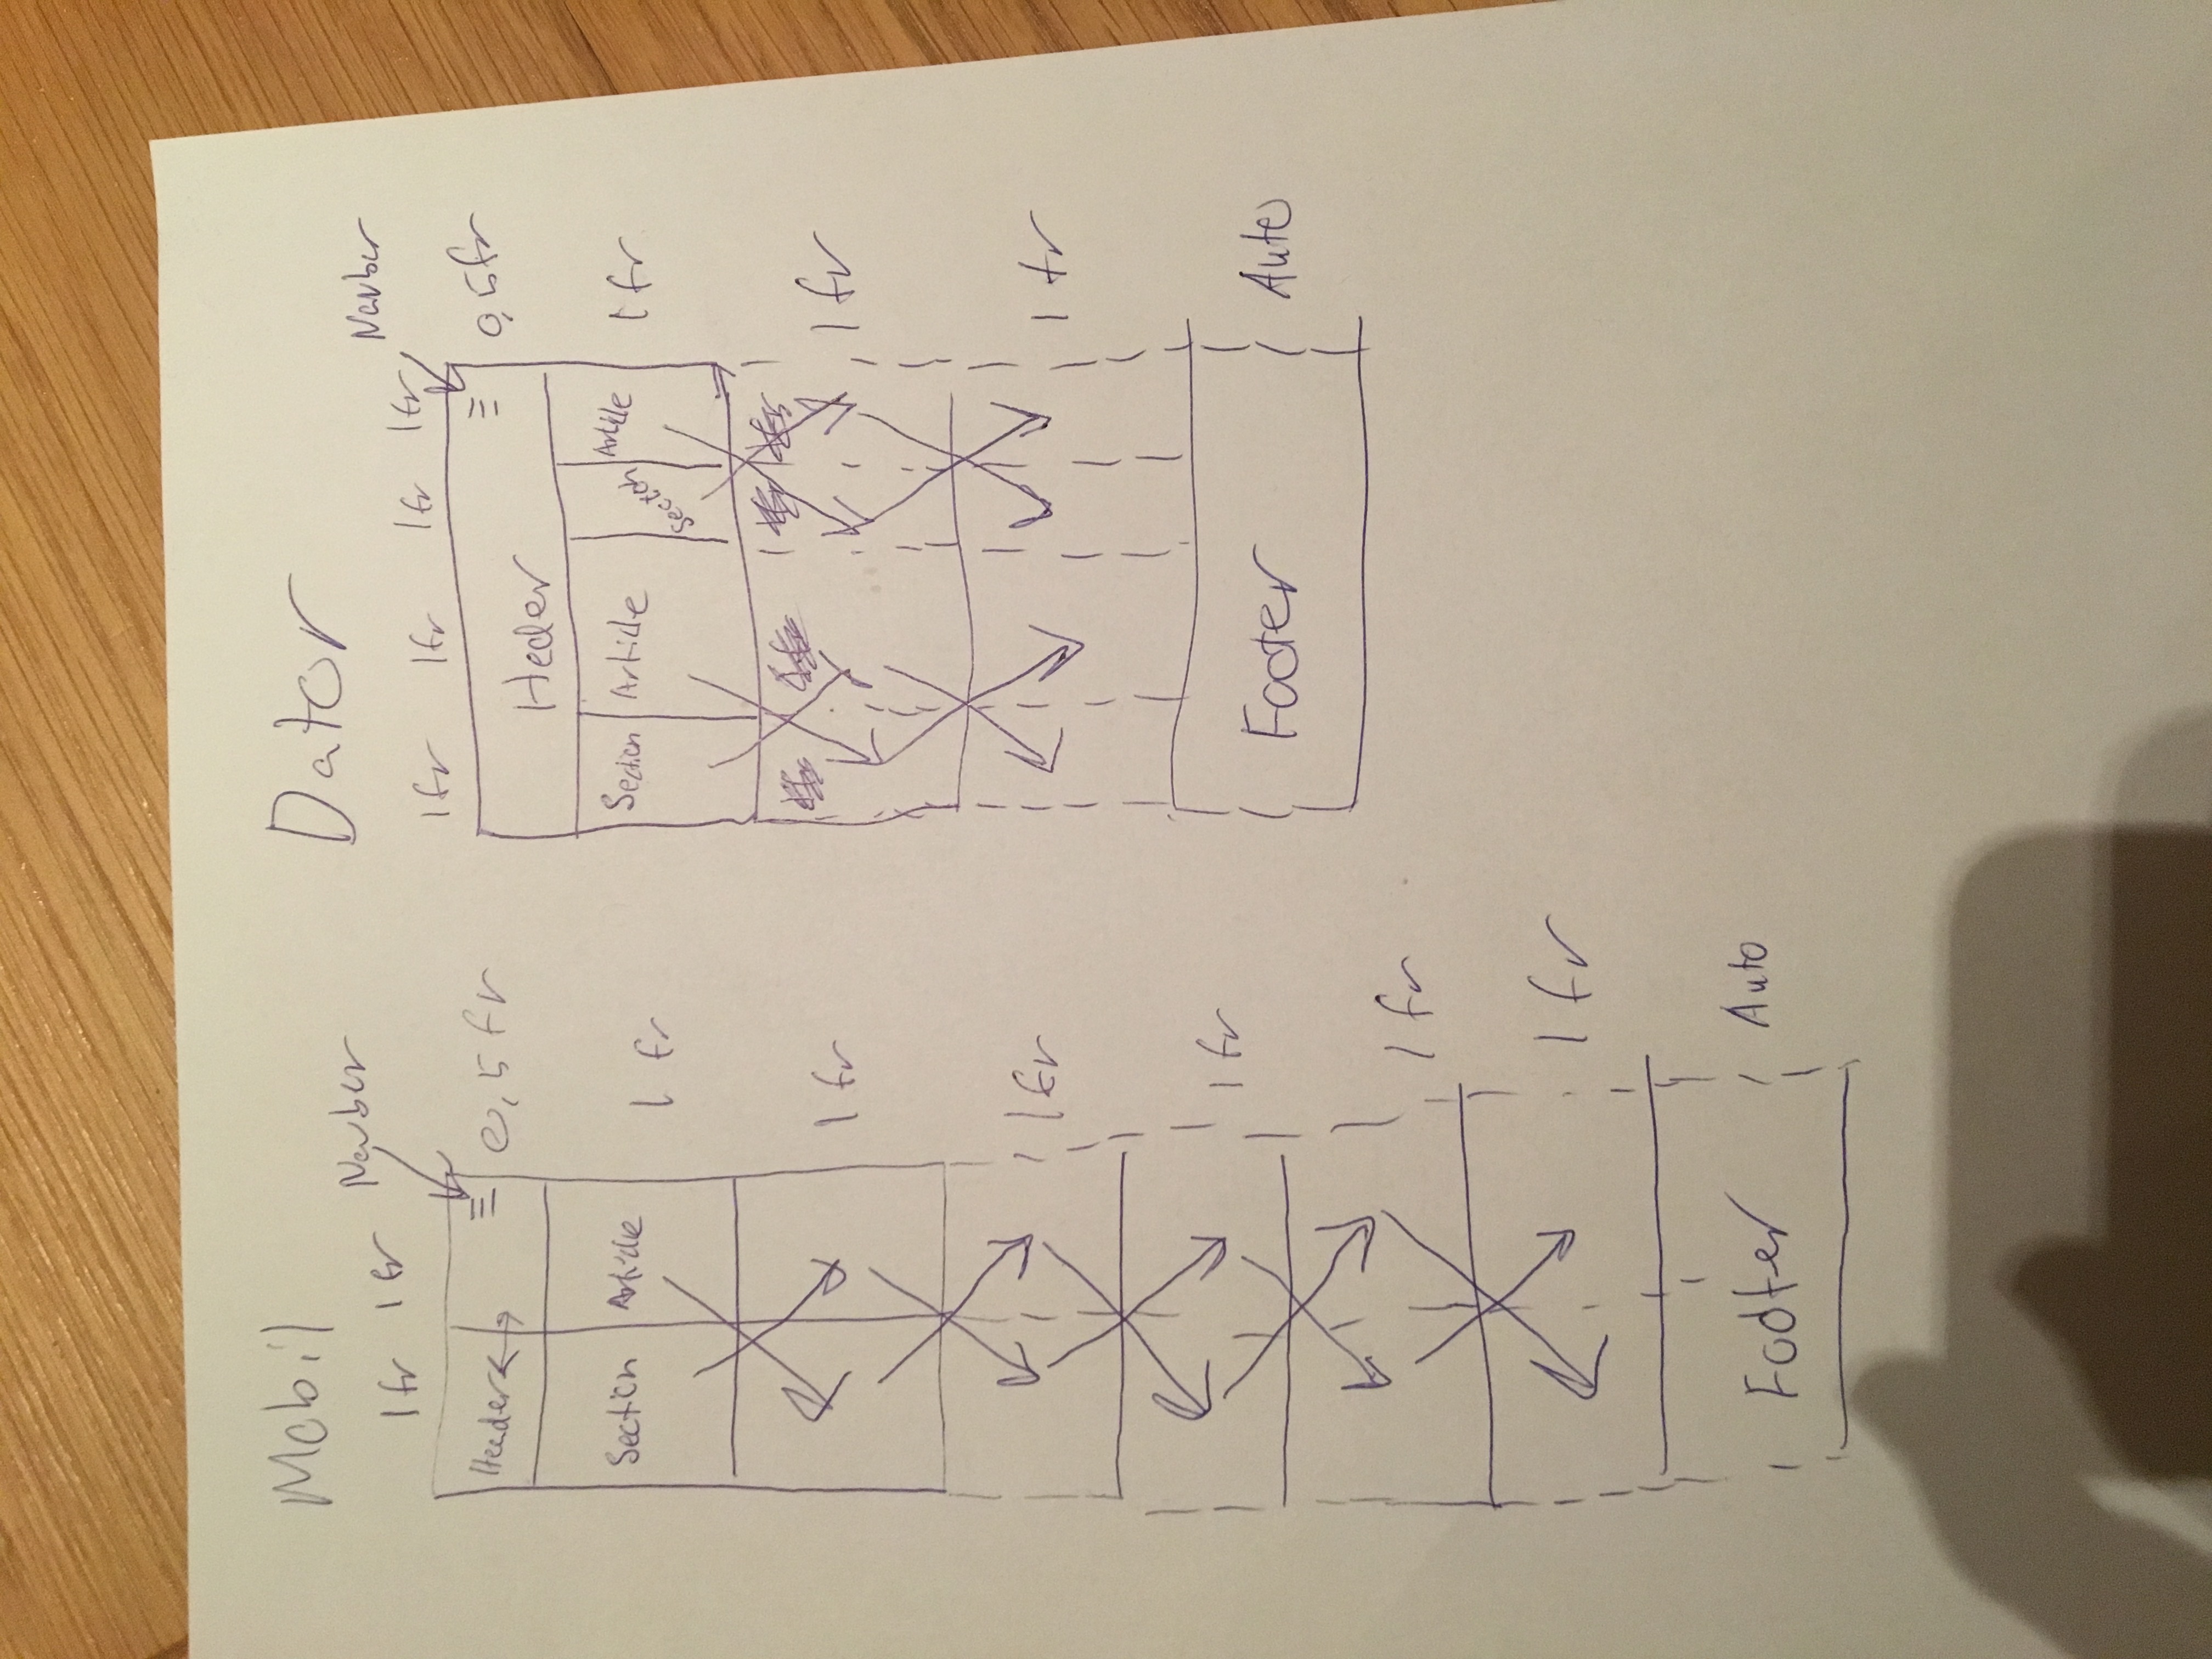 Mobil
Navbar
1 fr 1 fr
Header
0,5 fr
Section Article
1 fr
1 fr
1 fr
1 fr
1 fr
1 fr
Footer
Auto
Dator
Navbar
1 fr 1 fr 1 fr 1 fr
0,5 fr
Heder
Section Article Section Article
1 fr
1 fr
1 fr
Footer
Auto